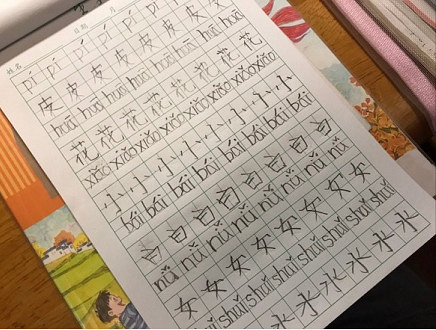 姓名 日期 月
pí pí pí pí pí pí pí
皮 皮 皮 皮 皮 皮 皮 皮
huā huā huā huā huā huā huā huā
花 花 花 花 花 花 花 花
xiǎo xiǎo xiǎo xiǎo xiǎo xiǎo xiǎo xiǎo
小 小 小 小 小 小 小 小
bái bái bái bái bái bái bái bái
白 白 白 白 白 白 白 白
nǚ nǚ nǚ nǚ nǚ nǚ nǚ nǚ
女 女 女 女 女 女 女
shuǐ shuǐ shuǐ shuǐ shuǐ shuǐ shuǐ
水 水 水 水 水 水